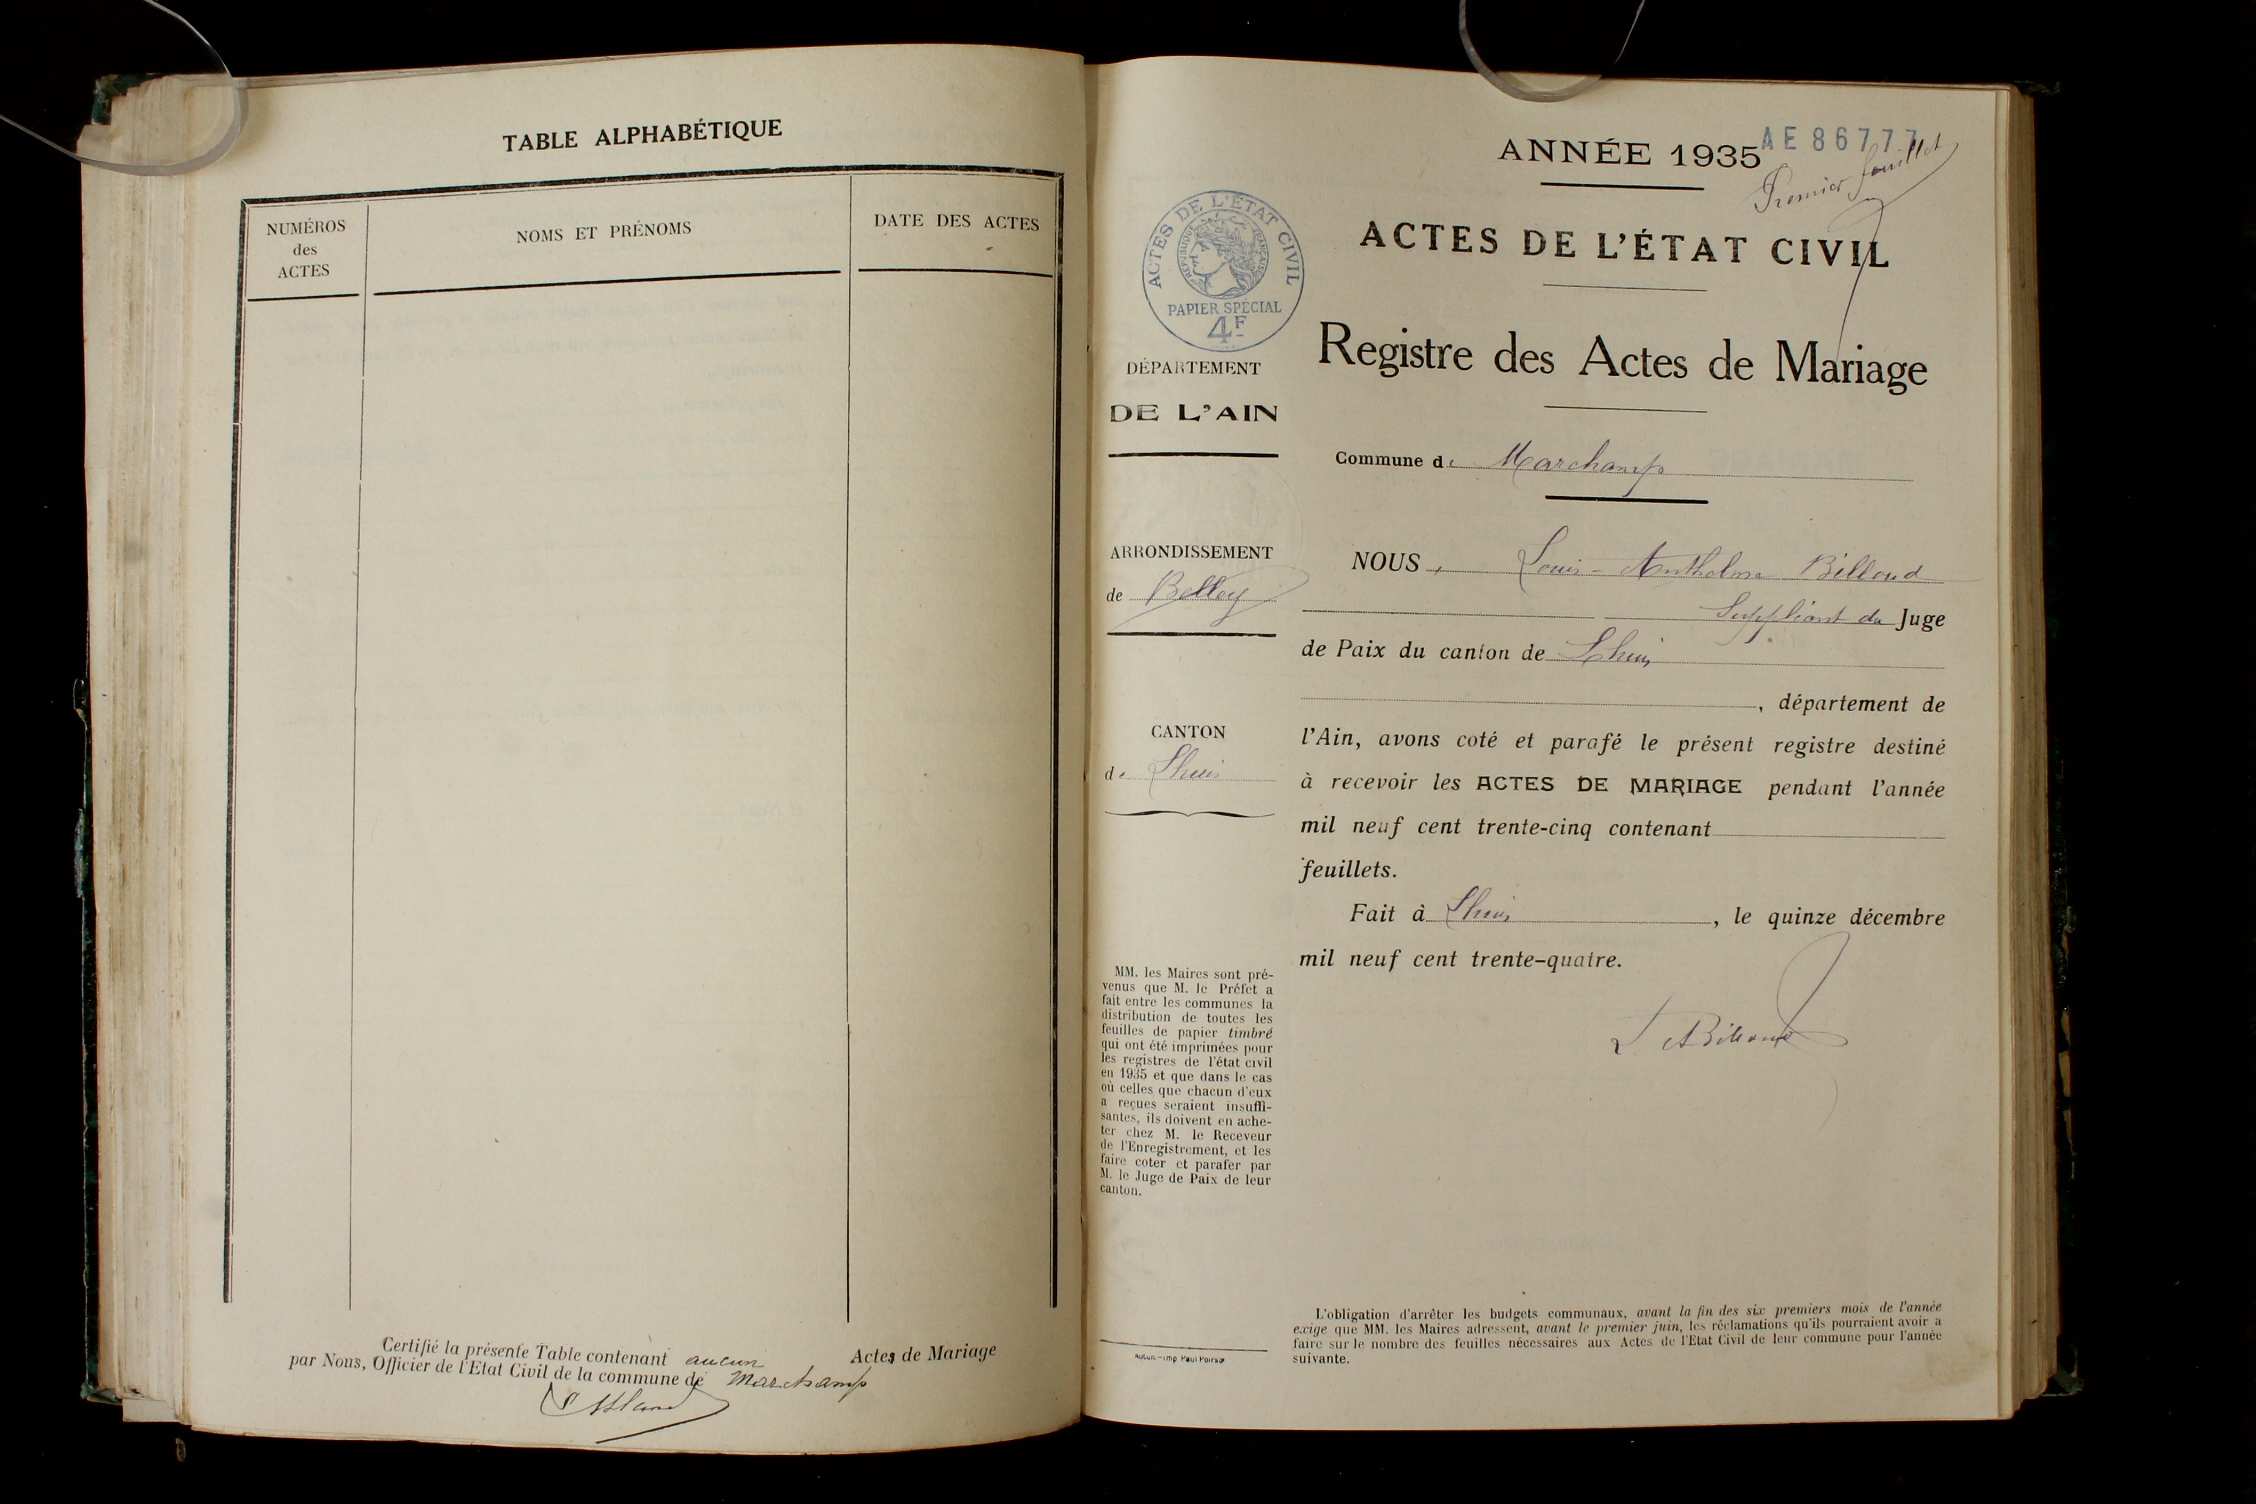 TABLE ALPHABÉTIQUE
NUMÉROS
des
ACTES
NOMS ET PRÉNOMS
DATE DES ACTES
Certifié la présente Table contenant aucun Actes de Mariage
par Nous, Officier de l'Etat Civil de la commune de Marchamp
ANNÉE 1935
AE 86777
Premier feuillet
ACTES DE L'ÉTAT CIVIL
RÉPUBLIQUE FRANÇAISE
PAPIER SPÉCIAL
4F
DÉPARTEMENT
DE L'AIN
ARRONDISSEMENT
de Belley
CANTON
de Lhuis
MM. les Maires sont pré-
venus que M. le Préfet a
fait entre les communes la
distribution de toutes les
feuilles de papier timbré
qui ont été imprimées pour
les registres de l'état civil
en 1935 et que dans le cas
où celles que chacun d'eux
a reçues seraient insuffi-
santes, ils doivent en ache-
ter chez M. le Receveur
de l'Enregistrement, et les
faire coter et parafer par
M. le Juge de Paix de leur
canton.
ACTES DE L'ÉTAT CIVIL
Registre des Actes de Mariage
Commune de Marchamp
NOUS, Louis-Anthelme Billoud
Suppléant du Juge
de Paix du canton de Lhuis
, département de
l'Ain, avons coté et parafé le présent registre destiné
à recevoir les ACTES DE MARIAGE pendant l'année
mil neuf cent trente-cinq contenant
feuillets.
Fait à Lhuis, le quinze décembre
mil neuf cent trente-quatre.
L A Billoud
L'obligation d'arrêter les budgets communaux, avant la fin des six premiers mois de l'année
exige que MM. les Maires adressent, avant le premier juin, les réclamations qu'ils pourraient avoir à
faire sur le nombre des feuilles nécessaires aux Actes de l'Etat Civil de leur commune pour l'année
suivante.
Autun - Imp Paul Poirson